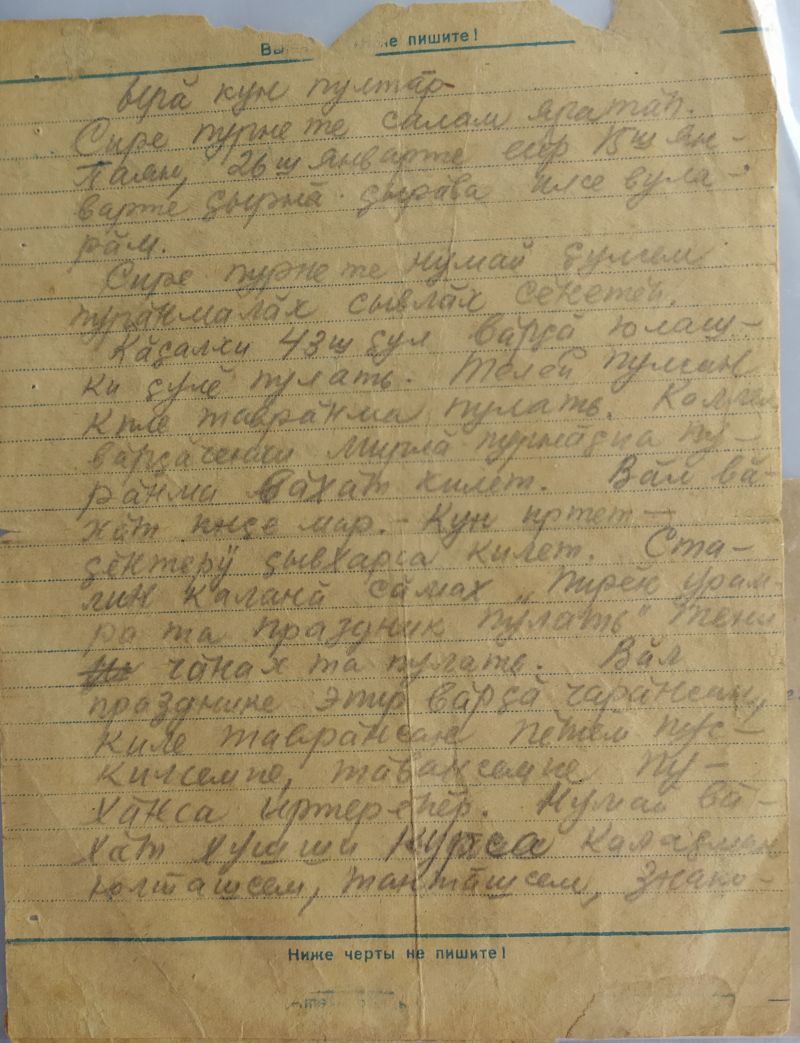 не пишите!
верӑ кун пултӑр
Сире пурне те салам яратӑп.
Паян, 26ш январте эсир 15ш ян-
варте ҫырнӑ ҫырӑва илсе вула-
рӑм.
Сире пурне те нумай ҫулсем
пурӑнмалӑх сывлӑх сӗнетӗп.
Кӑҫалхи 43ш ҫул вӑрҫӑ юлаш-
ки ҫулӗ пулать. Телей пулсан
киле таврӑнма пулать. Каллех
вӑрҫӑченхи мирлӑ пурнӑҫпа пу-
рӑнма вӑхӑт килет. Вӑл вӑ-
хӑт инҫе мар. Кун иртет-
ҫӗнтерӳ ҫывхарса килет. Ста-
лин каланӑ сӑмах „Пирӗн урам-
ра та праздник пулать" тени
чӑнах та пулать. Вӑл
празднике эпир вӑрҫӑ чарӑнсан,
киле таврӑнсан пӗтӗм пус-
килсемпе, тӑвансемпе пу-
хӑнса иртерӗпӗр. Нумай вӑ-
хӑт хушши курса калаҫман
юлташсем, тантӑшсем, знако-
Ниже черты не пишите!